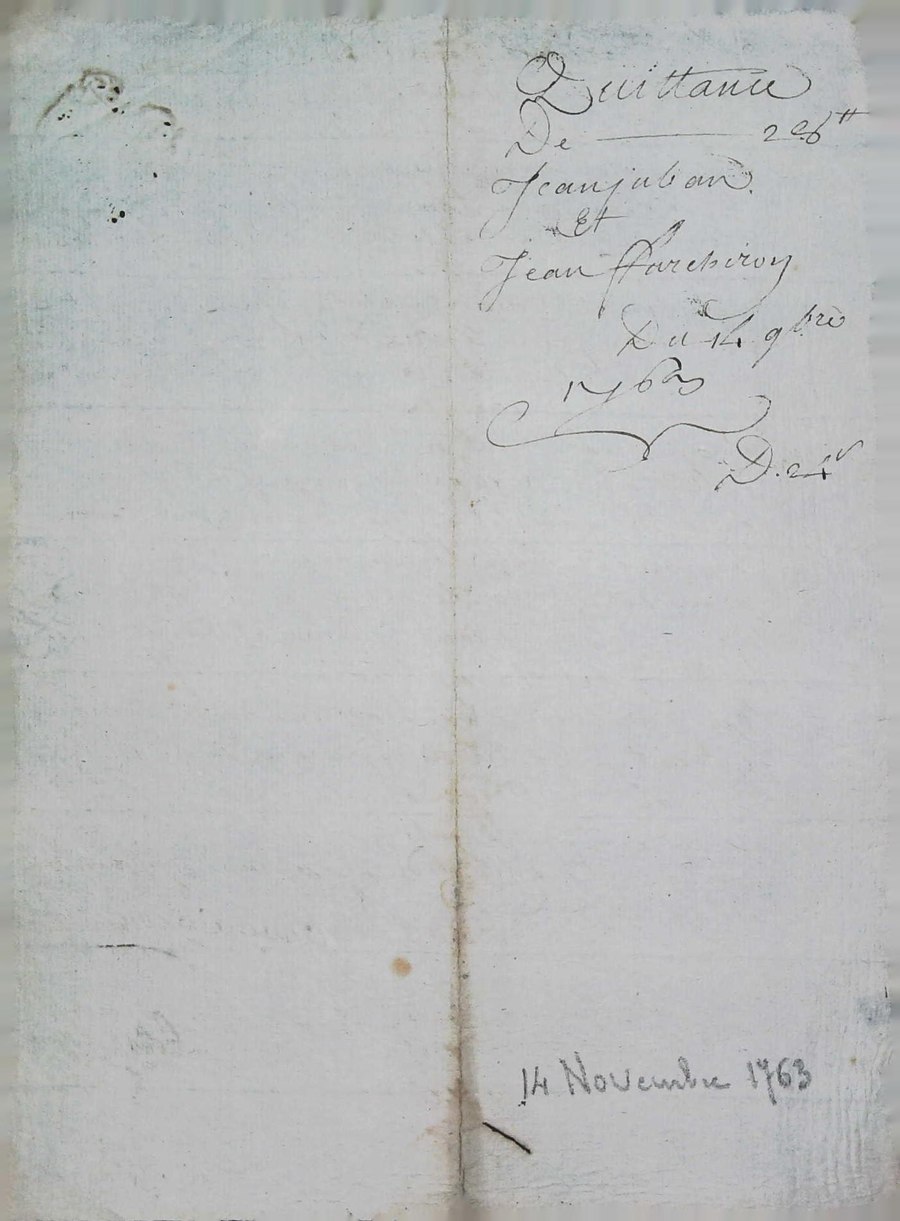 Quittance
De 28₶
Jean juban
Et
Jean
Du 14 9bre
1763
D.
14 Novembre 1763